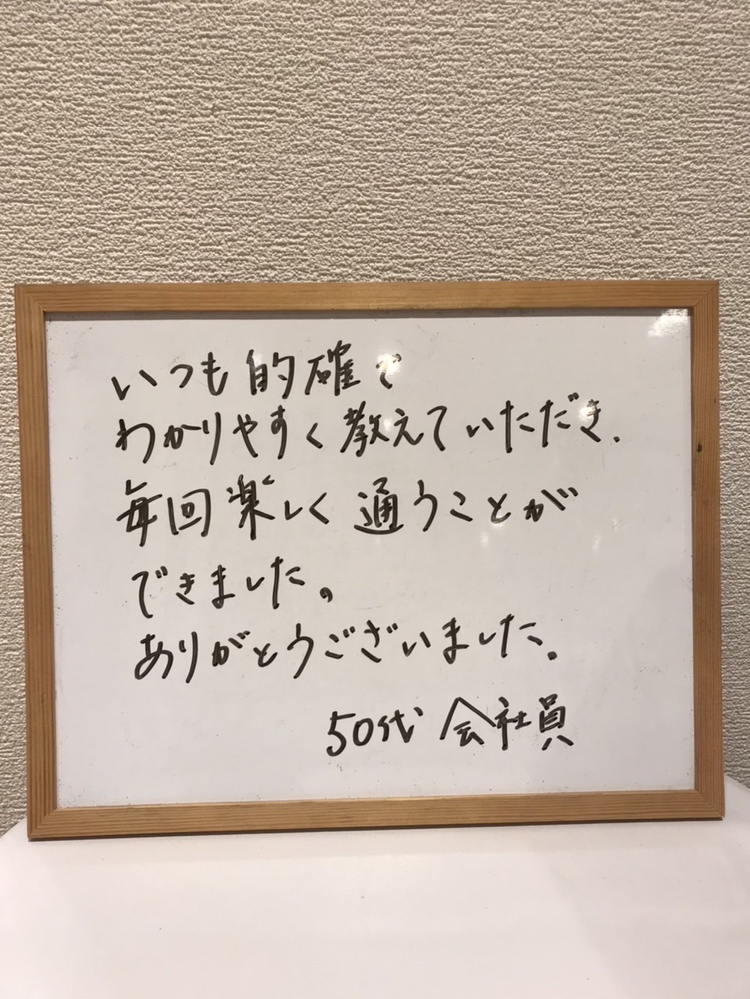 いつも的確で
わかりやすく教えていただき、
毎回楽しく通うことが
できました。
ありがとうございました。
50代 会社員